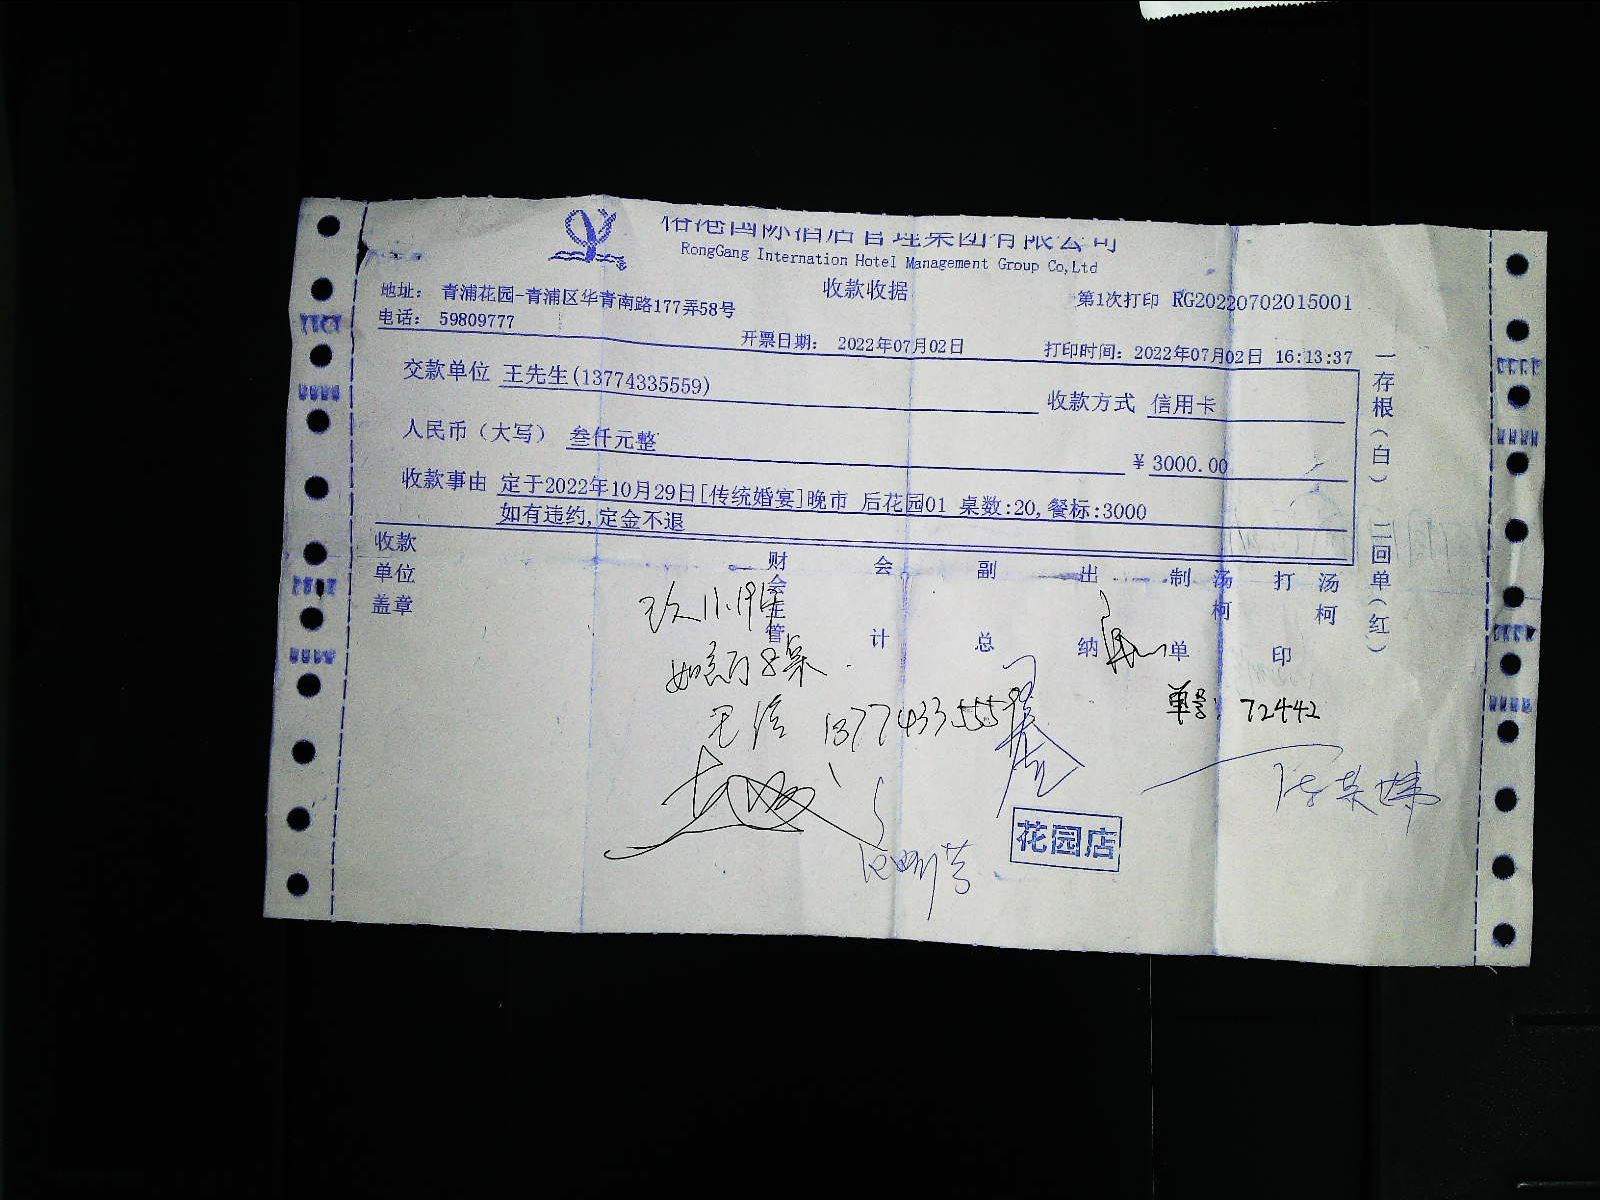 港国际酒店管理集团有限公司
RongGang Internation Hotel Management Group Co,Ltd
收款收据
地址: 青浦花园-青浦区华青南路177弄58号
第1次打印 RG20220702015001
电话: 59809777
开票日期: 2022年07月02日
打印时间: 2022年07月02日 16:13:37
交款单位 王先生(13774335559)
收款方式 信用卡
人民币(大写) 叁仟元整
¥ 3000.00
收款事由 定于2022年10月29日[传统婚宴]晚市 后花园01 桌数:20,餐标:3000
如有违约,定金不退
一存根(白) 二回单(红)
收款单位盖章
财会主管
会计
副总
出纳
制单
汤柯
打印
汤柯
11.19
8桌
13774335559
单号: 72442
花园店